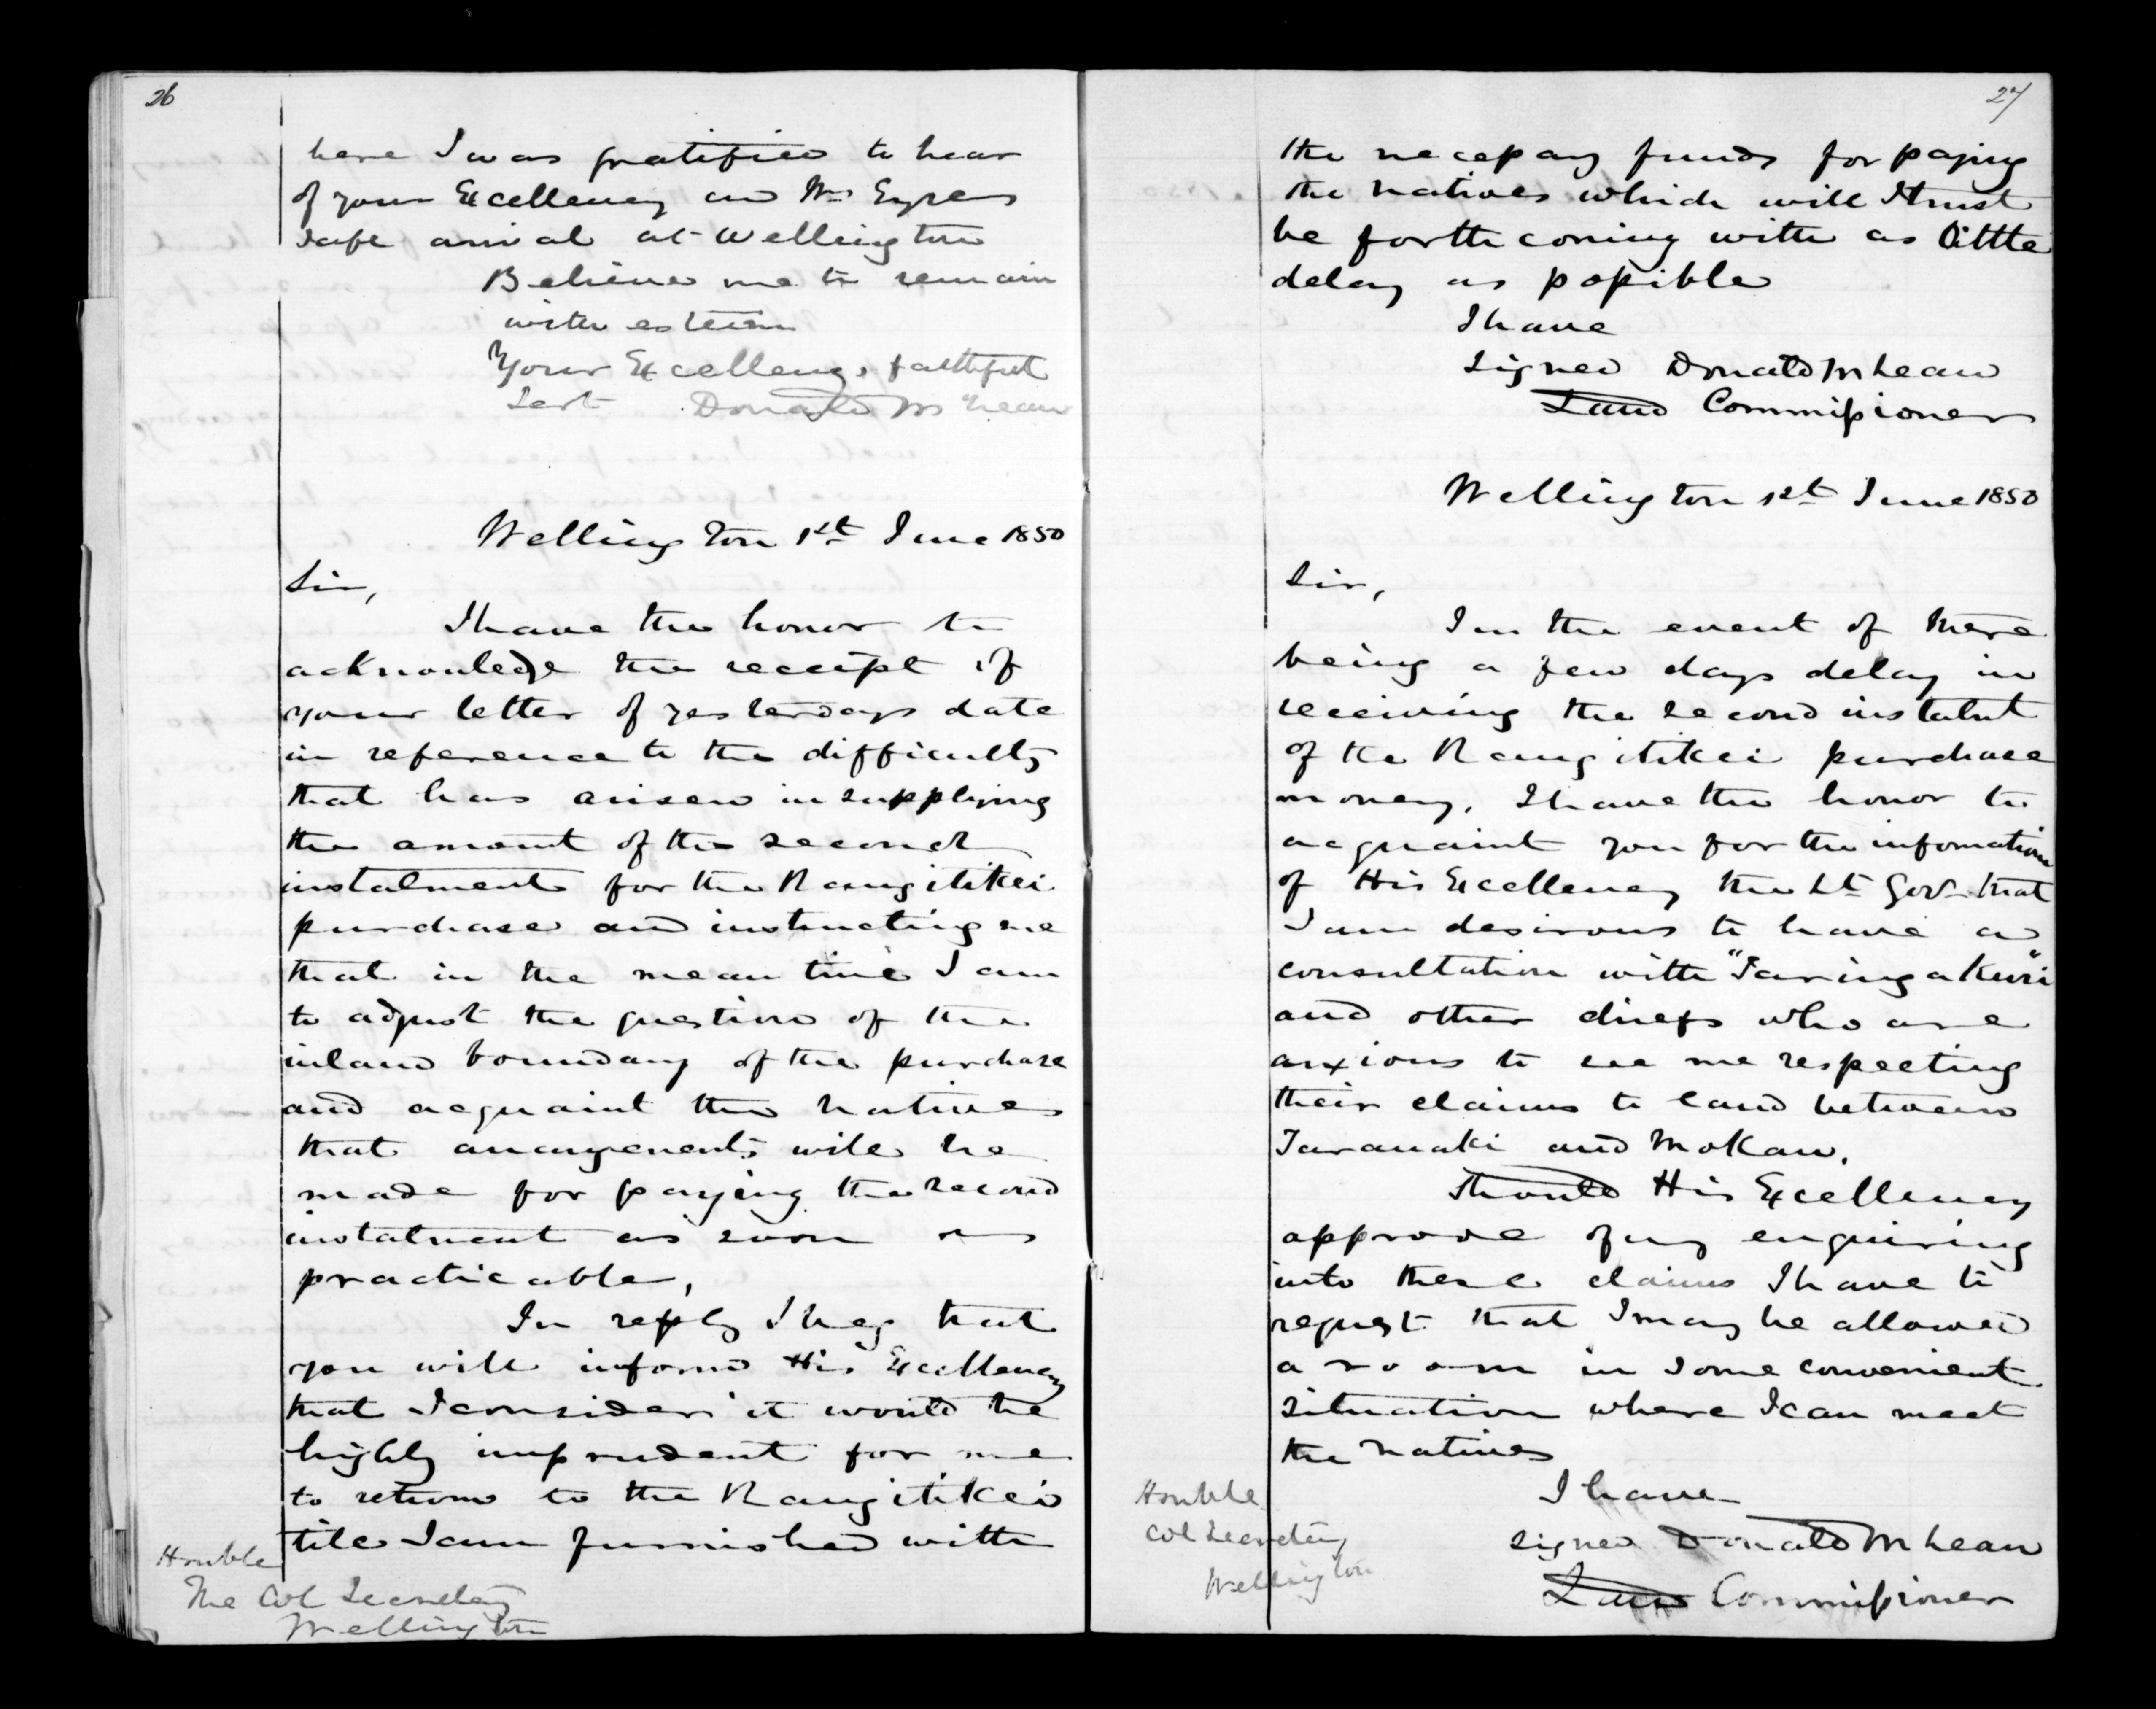 26
here I was gratified to hear
of your Excellency and Mrs Eyres
safe arrival at Wellington
Believe me to remain
with esteem
Your Excellencys faithful
Sert Donald McLean
Wellington 1st June 1850
Sir,
I have the honor to
acknowledge the receipt of
your letter of yesterdays date
in reference to the difficulty
that has arisen in supplying
the amount of the second
instalment for the Rangitikei
purchase and instructing me
that in the mean time I am
to adjust the question of the
inland boundary of the purchase
and acquaint the natives
that arrangements will be
made for paying the second
instalment as soon as
practicable,
In reply I beg that
you will inform His Excellency
that I consider it would be
highly imprudent for me
to return to the Rangitikei
till I am furnished with
Honble
The Col Secretary
Wellington
27
the necessary funds for paying
the natives which will I trust
be forthcoming with as little
delay as possible
I have
Signed Donald McLean
Land Commissioner
Wellington 1st June 1850
Sir,
In the event of there
being a few days delay in
receiving the second instalnt
of the Rangitikei purchase
money, I have the honor to
acquaint you for the information
of His Excellency the Lt Govr that
I am desirous to have a
consultation with "Taringa Kuri"
and other chiefs who are
anxious to see me respecting
their claims to land between
Taranaki and Mokau.
Should His Excellency
approve of my enquiring
into these claims I have to
request that I may be allowed
a room in some convenient
situation where I can meet
the natives
I have
Signed Donald McLean
Land Commissioner
Honble
Col Secretary
Wellington